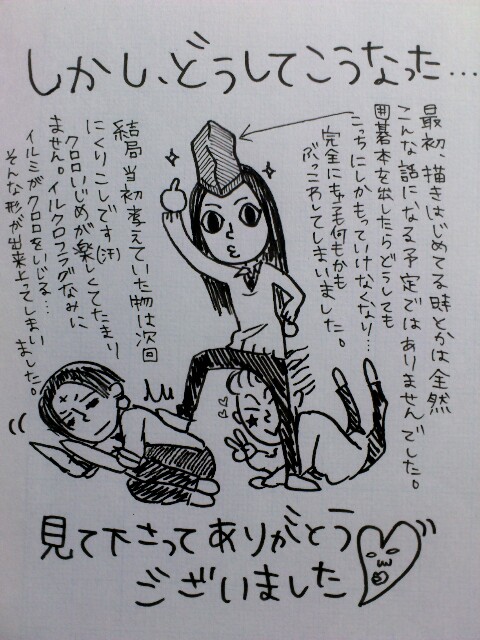 しかし、どうしてこうなった…
最初、描きはじめてる時とかは全然
こんな話になる予定ではありませんでした。
囲碁本を出したらどうしても
こっちにしかもっていけなくなり…
完全にムードも何もかも
ぶっこわしてしまいました。
結局 当初考えていた物は次回
にくりこしです(汗)
クロロいじめが楽しくてたまり
ません。イルクロフラグなみに
イルミがクロロをいじる…
そんな形が出来上ってしまい
ました。
見て下さってありがとう
ございました